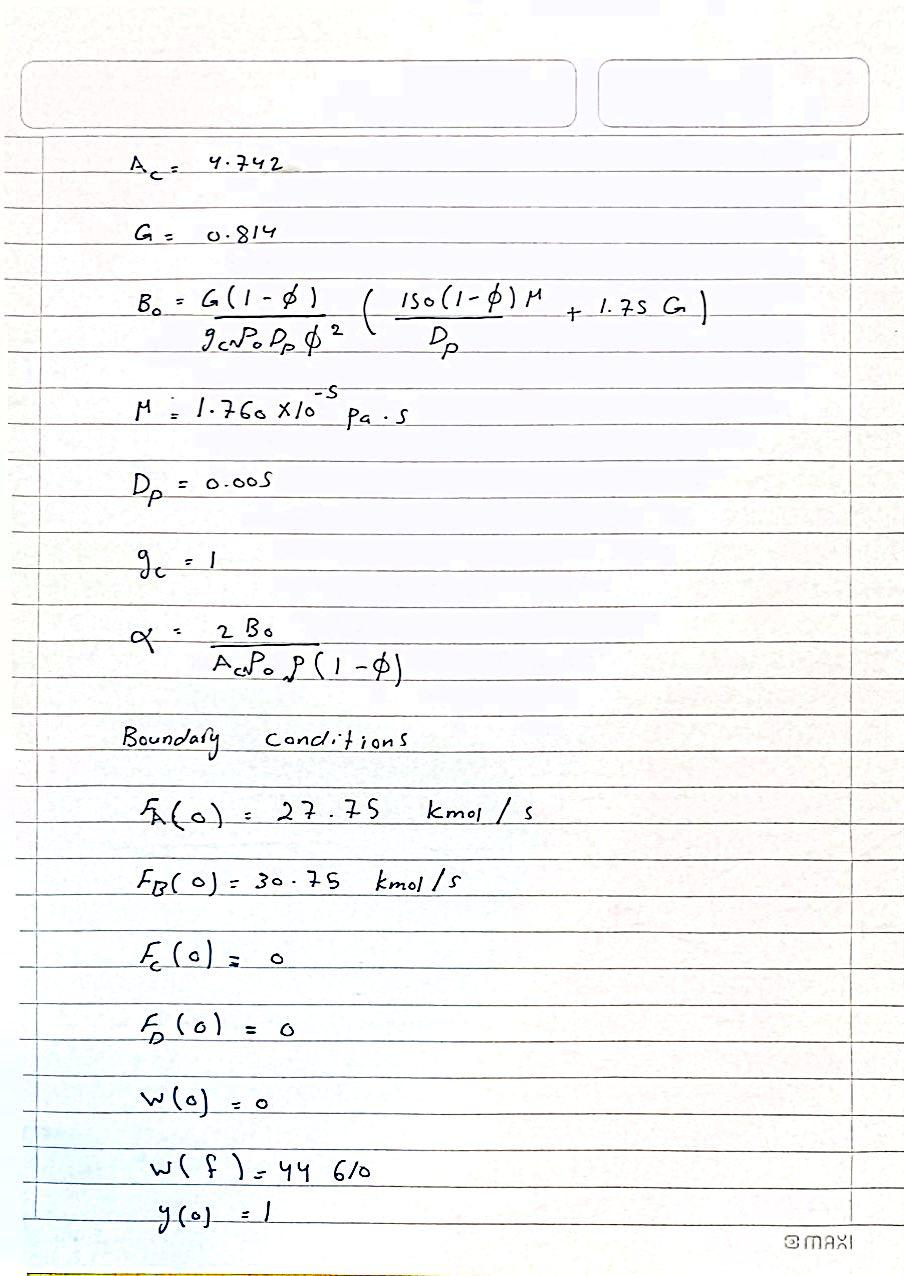 A_c = 4.742
G = 0.814
B_o = G(1-ϕ) / g_c P_o D_p ϕ² ( 150(1-ϕ)μ / D_p + 1.75 G )
μ = 1.760 x10^-5 pa.s
D_p = 0.005
g_c = 1
α = 2 B_o / A_c P_o ρ(1-ϕ)
Boundary conditions
F_A(0) = 27.75 kmol/s
F_B(0) = 30.75 kmol/s
F_C(0) = 0
F_D(0) = 0
W(0) = 0
W(f) = 44 610
y(0) = 1
MAXI